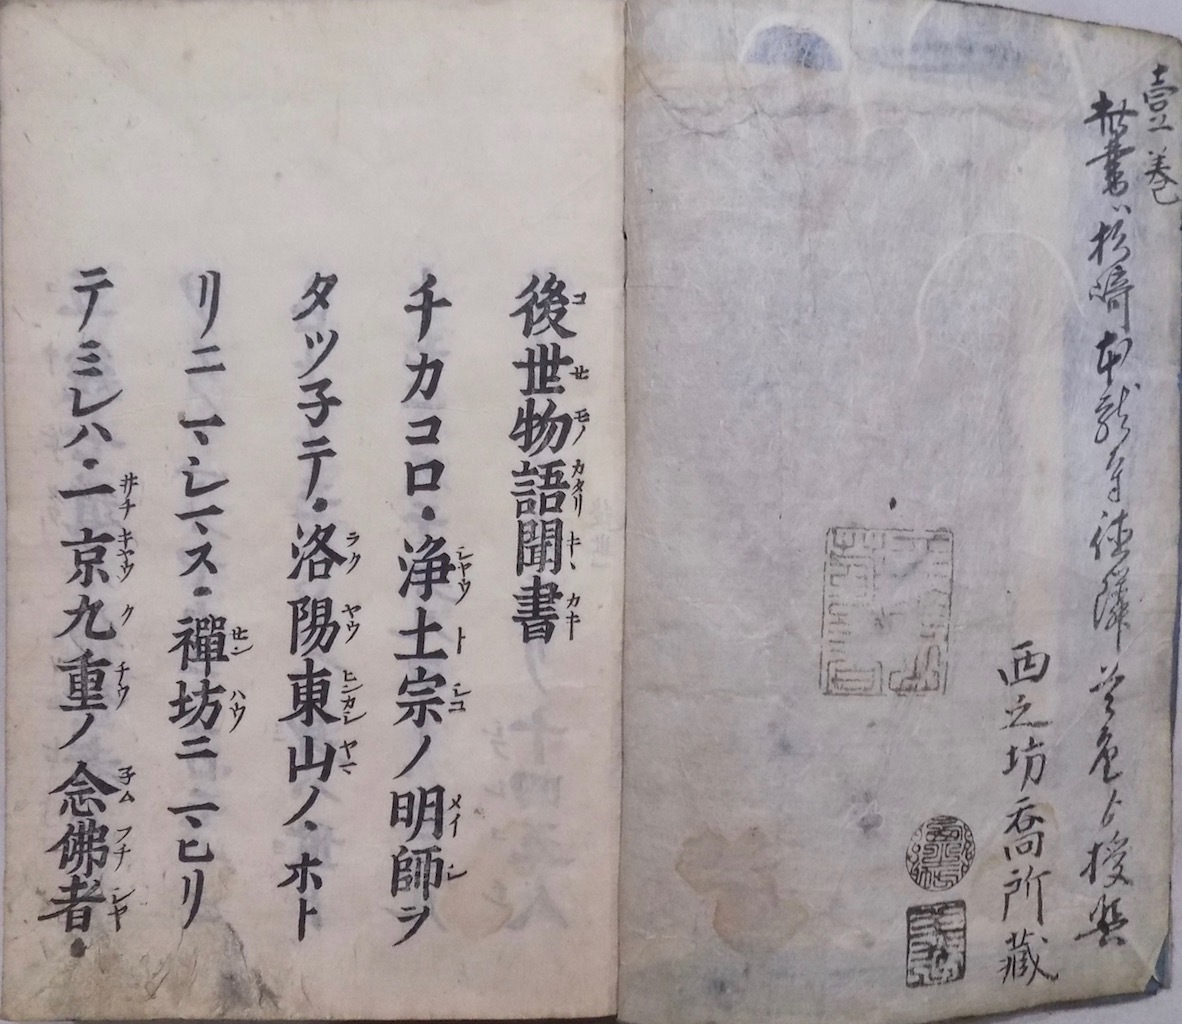 壹巻
此書ハ松﨑本龍寺徳隣ゟ授與
西之坊喬所藏
後世物語聞書
チカコロ・浄土宗ノ明師ヲ
タツ子テ・洛陽東山ノ、ホト
リニマシマス・禪坊ニマヒリ
テミレハ・一京九重ノ念佛者・